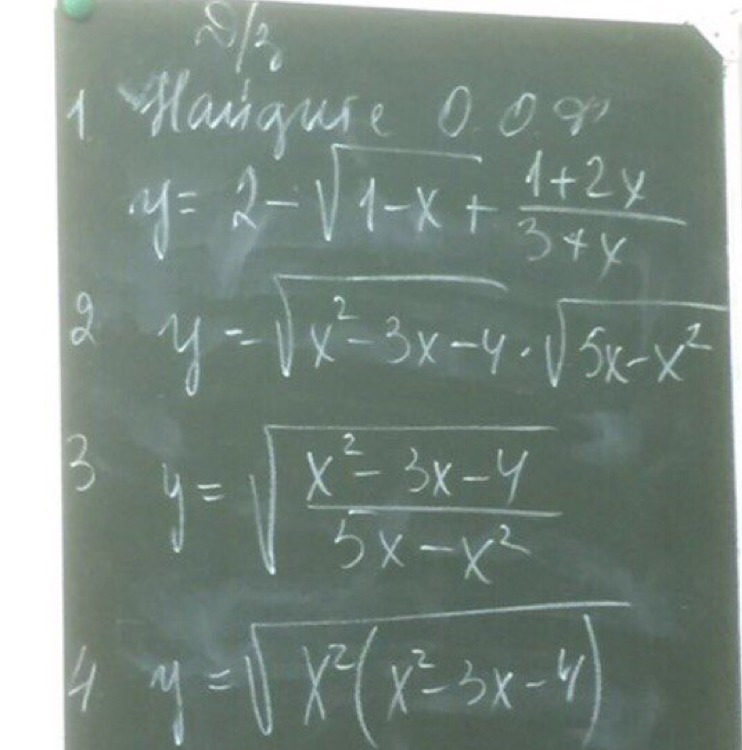 Д/з
1 Найдите О.О.Ф
y = 2 - √(1-x) + (1+2x)/(3+x)
2 y = √(x²-3x-4) · √(5x-x²)
3 y = √((x²-3x-4)/(5x-x²))
4 y = √(x²(x²-3x-4))